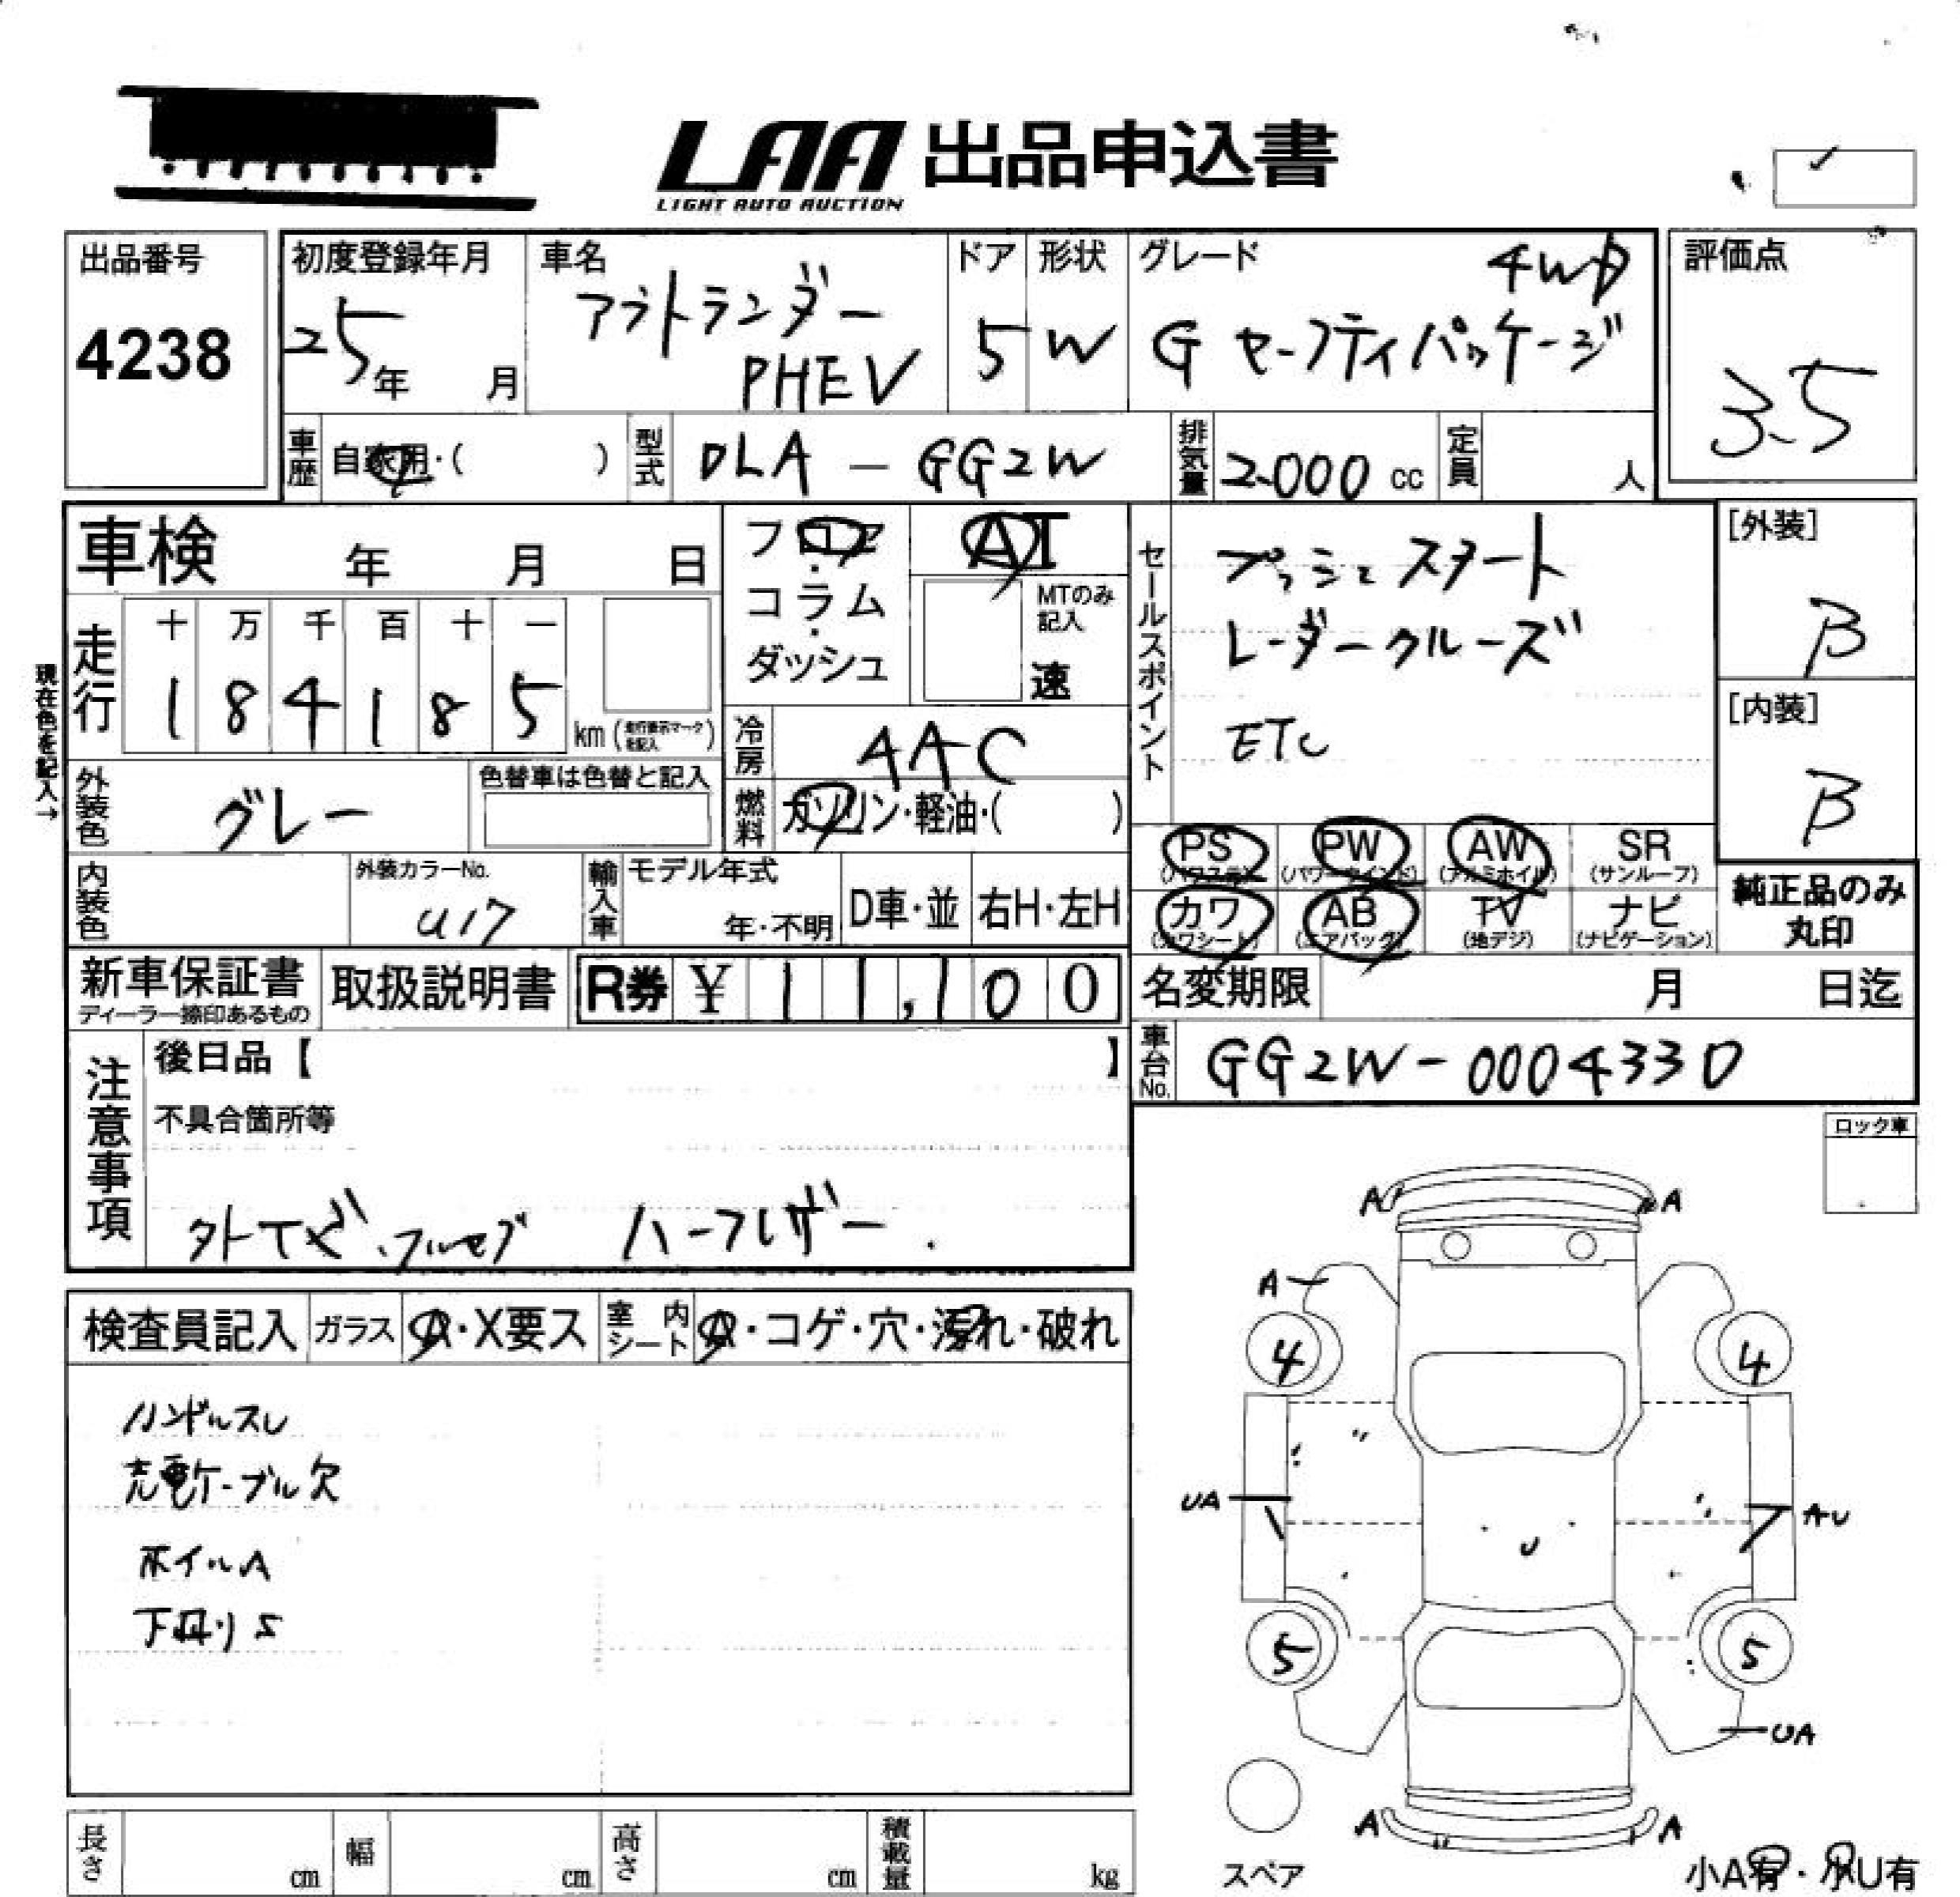 LAA 出品申込書
LIGHT AUTO AUCTION
出品番号
4238
初度登録年月
25年 月
車名
アウトランダー
PHEV
ドア
5
形状
W
グレード
4WD
G セーフティパッケージ
評価点
3.5
車歴 自家用・( )
型式 DLA-GG2W
排気量 2.000 cc
定員 人
車検 年 月 日
フロア・コラム・ダッシュ
AT
MTのみ記入
速
走行
十 万 千 百 十 一
1 8 4 1 8 5 km (走行表示マークを記入)
現在色を記入→
冷房 AAC
外装色 グレー
色替車は色替と記入
燃料 ガソリン・軽油・( )
セールスポイント
プッシュスタート
レーダークルーズ
ETC
[外装]
B
[内装]
B
PS (パワステ) PW (パワーウインド) AW (アルミホイル) SR (サンルーフ)
カワ (カワシート) AB (エアバッグ) TV (地デジ) ナビ (ナビゲーション)
純正品のみ
丸印
内装色
外装カラーNo.
U17
輸入車 モデル年式
年・不明
D車・並 右H・左H
新車保証書
ディーラー捺印あるもの
取扱説明書
R券 ¥ 11,100
名変期限 月 日迄
車台No. GG2W-0004330
注意事項
後日品【 】
不具合箇所等
ハーフレザー.
ロック車
検査員記入 ガラス A・X要ス 室内シート A・コゲ・穴・汚れ・破れ
ハンドルスレ
充電ケーブル欠
ホイルA
下回りS
A A
A
4 4
UA AU
U
5 5
UA
A A
スペア
小A有・小U有
長さ cm 幅 cm 高さ cm 積載量 kg